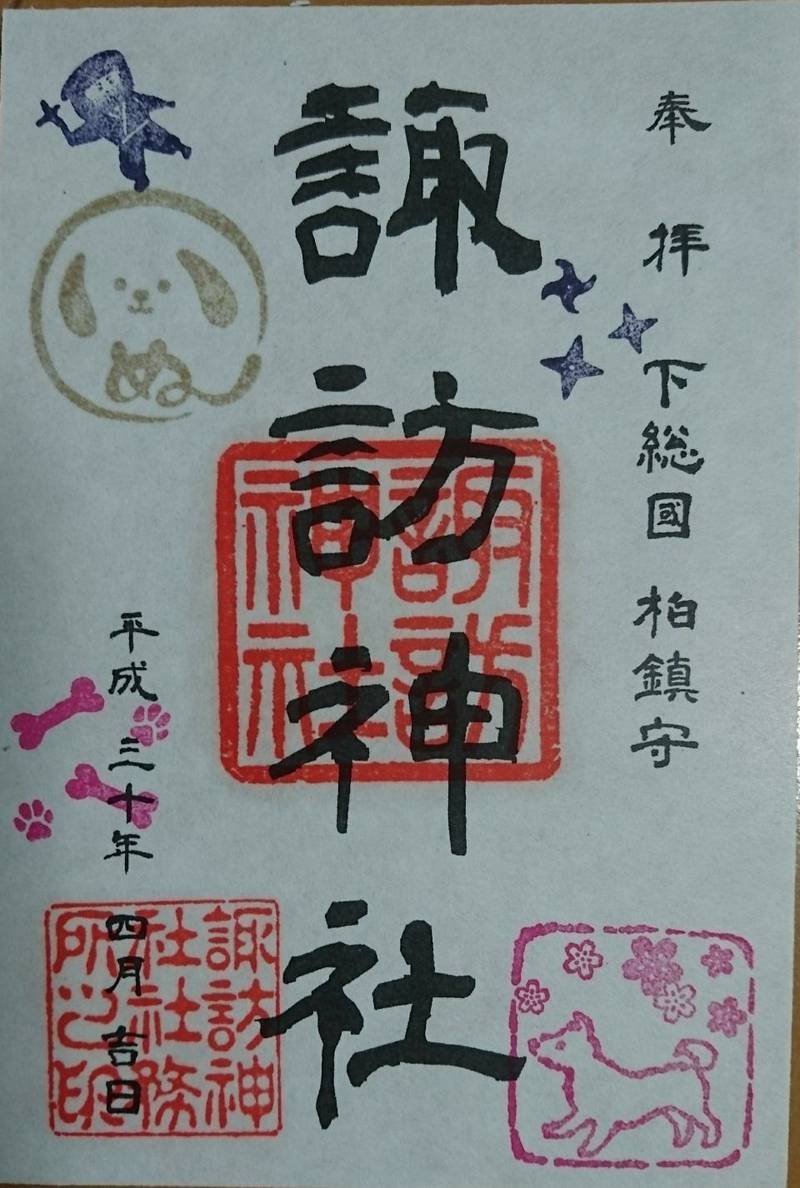 奉拝 下総國 柏鎮守
諏訪神社
諏訪
神社
平成三十年四月吉日
諏訪神
社社務
所之印
ぬ